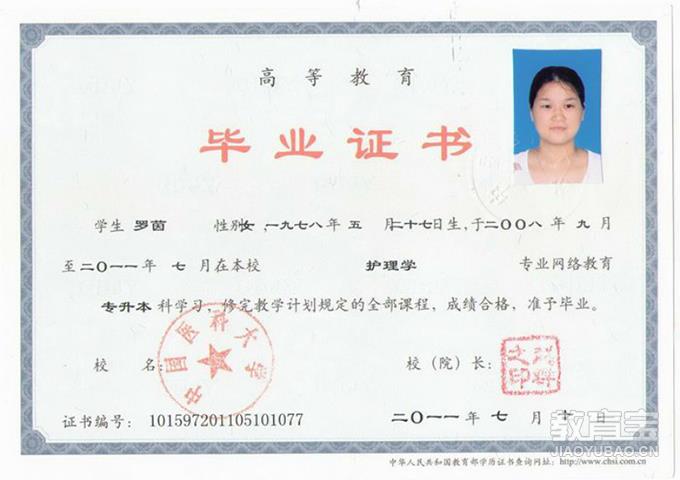 高等教育
毕业证书
学生 罗茵 性别 女，一九七八年 五 月 二十七日生，于二〇〇八年 九 月
至二〇一一年 七 月在本校 护理学 专业网络教育
专升本 科学习，修完教学计划规定的全部课程，成绩合格，准予毕业。
校 名： 校（院）长：
中国医科大学
之印
证书编号：101597201105101077
二〇一一年 七 月 十 日
教育宝
JIAOYUBAO.CN
中华人民共和国教育部学历证书查询网址：http://www.chsi.com.cn